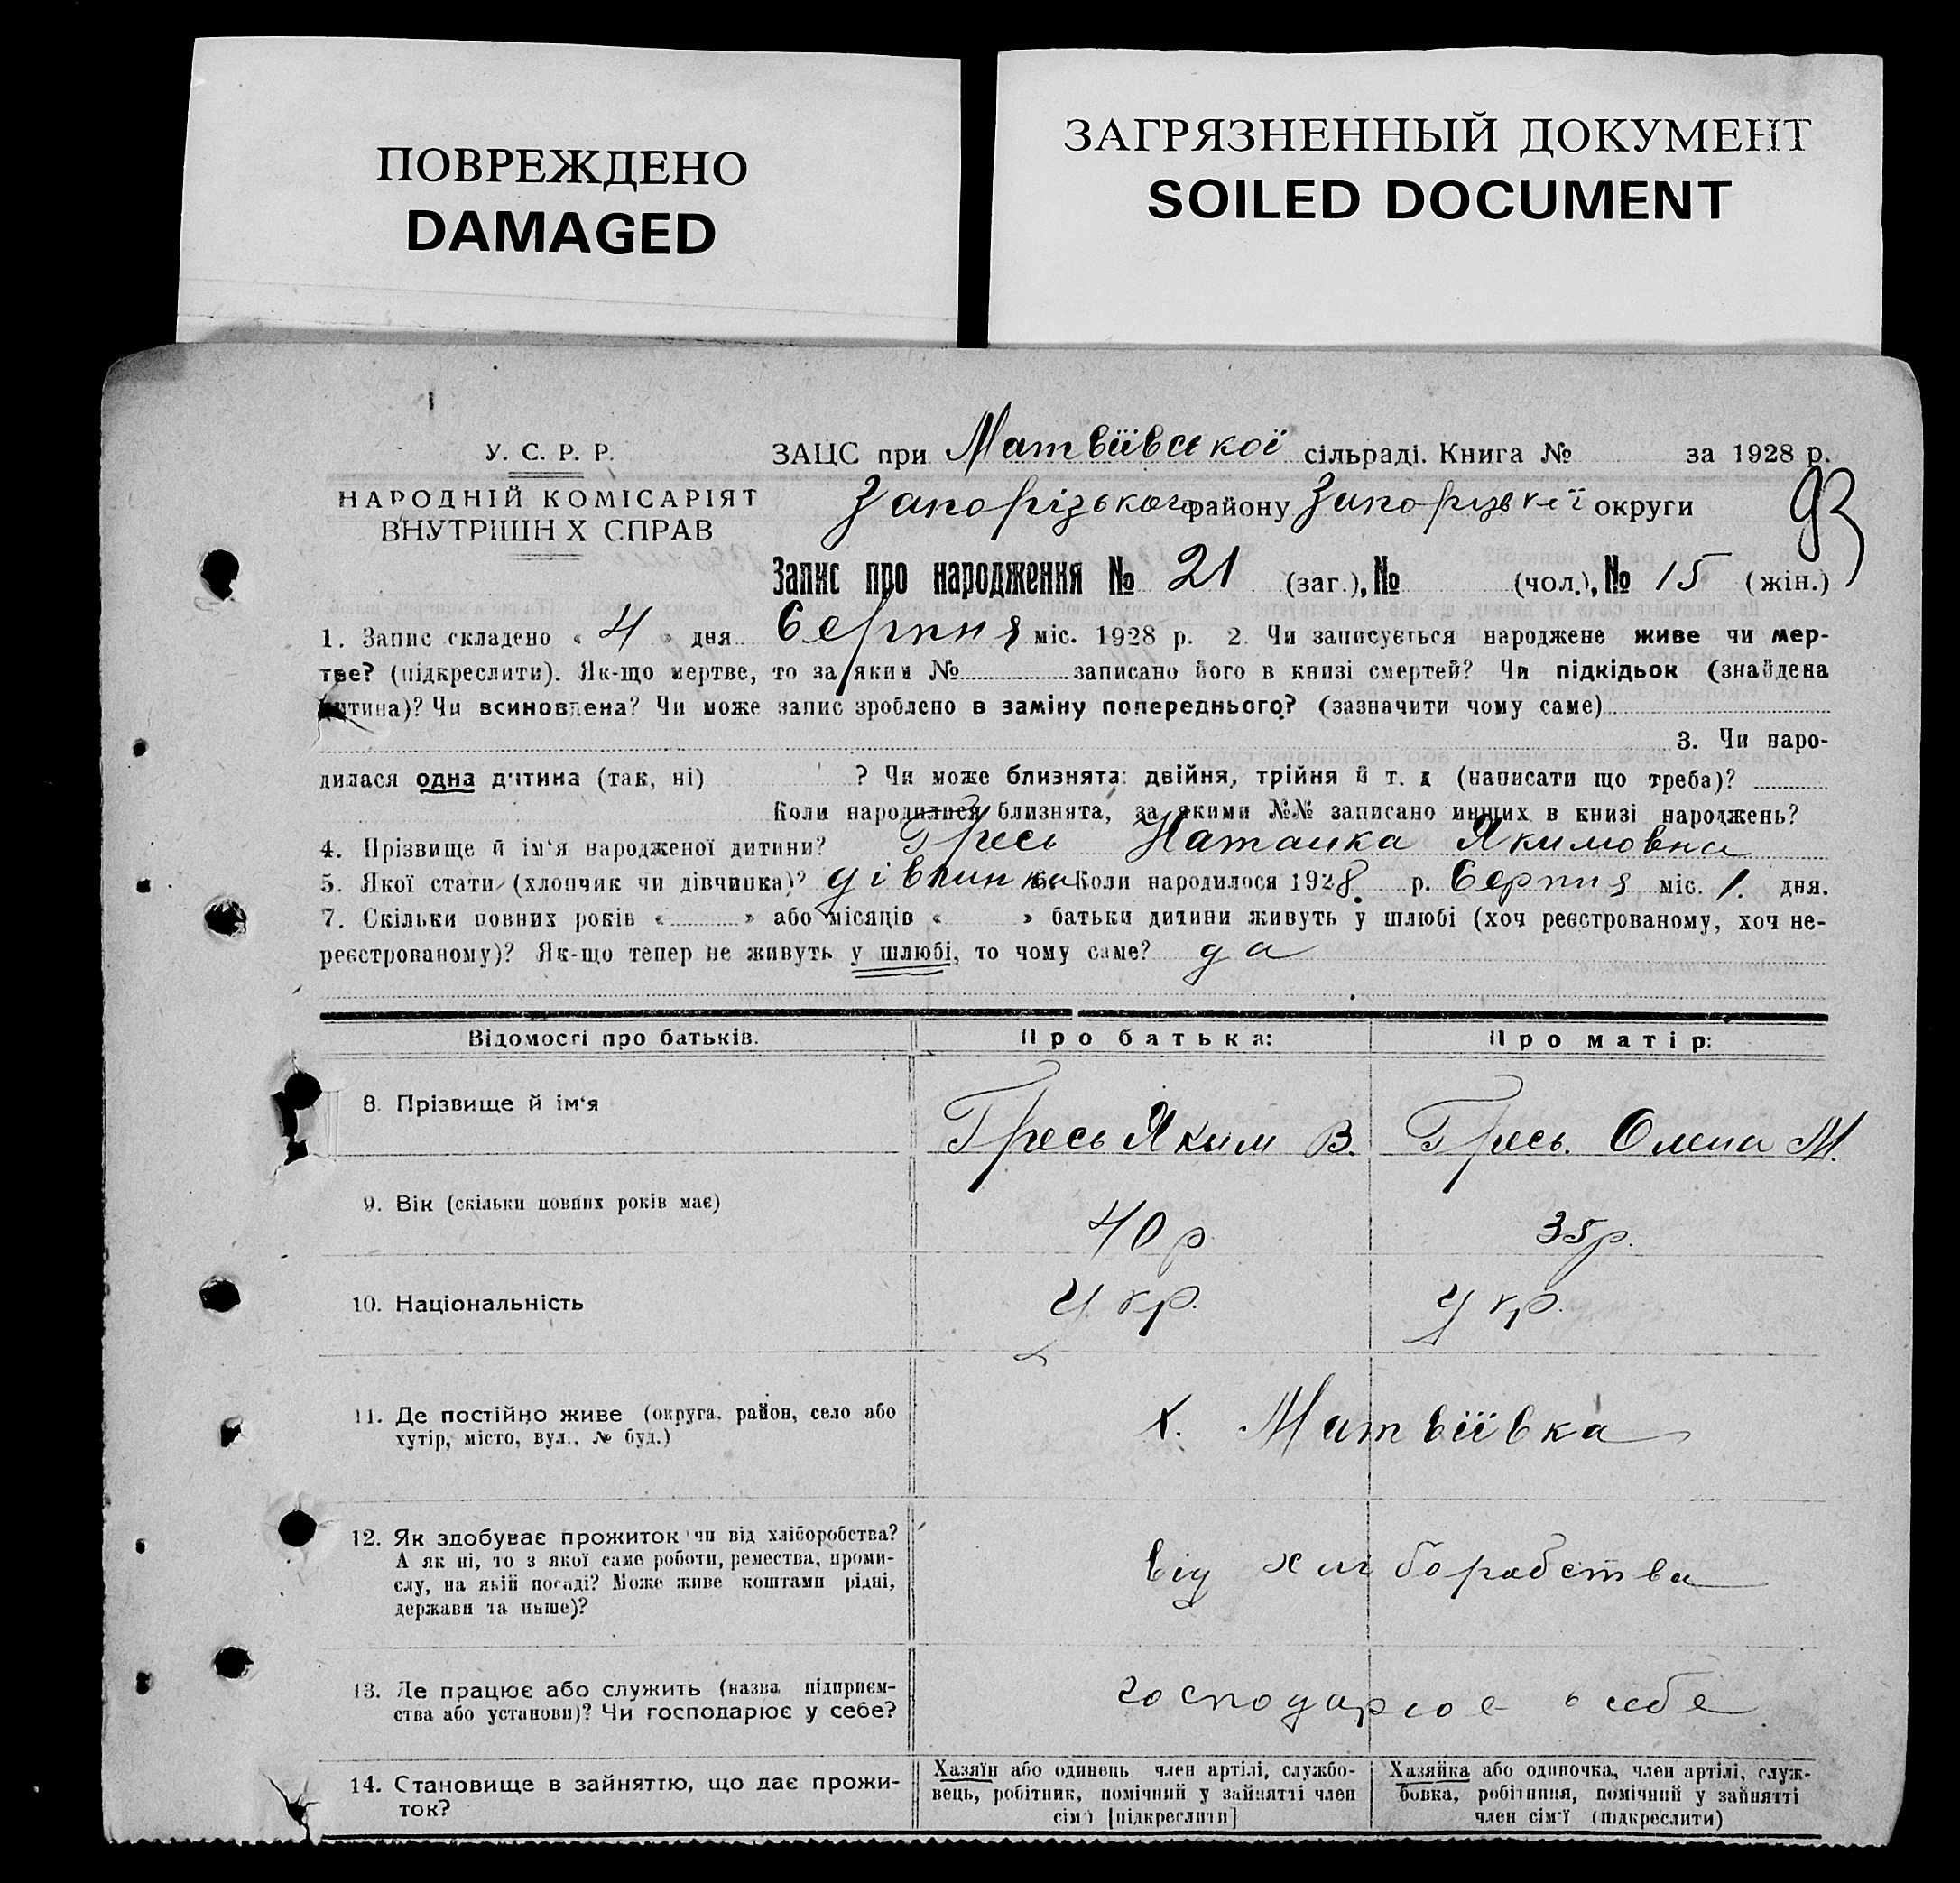 ПОВРЕЖДЕНО
DAMAGED
ЗАГРЯЗНЕННЫЙ ДОКУМЕНТ
SOILED DOCUMENT
У. С. Р. Р.
НАРОДНІЙ КОМІСАРІЯТ
ВНУТРІШН Х СПРАВ
ЗАЦС при Матвіївської сільраді. Книга № за 1928 р.
Запорізького району Запорізької округи
93
Запис про народження № 21 (заг.), № (чол.), № 15 (жін.)
1. Запис складено « 4 » дня Серпня міс. 1928 р. 2. Чи записується народжене живе чи мер-
тве? (підкреслити). Як-що мертве, то за яким № записано його в книзі смертей? Чи підкідьок (знайдена
дитина)? Чи всиновлена? Чи може запис зроблено в заміну попереднього? (зазначити чому саме)
3. Чи наро-
дилася одна дитина (так, ні) ? Чи може близнята: двійня, трійня й т. д (написати що треба)?
Коли народилися близнята, за якими №№ записано инших в книзі народжень?
4. Прізвище й ім‘я народженої дитини? Гресь Наталка Якимовна
5. Якої стати (хлопчик чи дівчинка)? дівчинка 6. Коли народилося 1928 р. Серпня міс. 1. дня.
7. Скільки повних років « » або місяців « » батьки дитини живуть у шлюбі (хоч реєстрованому, хоч не-
реєстрованому)? Як-що тепер не живуть у шлюбі, то чому саме? да
Відомості про батьків. Про батька: Про матір:
8. Прізвище й ім‘я Гресь Яким В. Гресь. Олена М.
9. Вік (скільки повних років має) 40 р 35 р.
10. Національність Укр. Укр.
11. Де постійно живе (округа, район, село або
хутір, місто, вул., № буд.)
х. Матвіївка
12. Як здобуває прожиток чи від хліборобства?
А як ні, то з якої саме роботи, ремества, проми-
слу, на якій посаді? Може живе коштами рідні,
держави та инше)?
від хліборобства
13. Де працює або служить (назва підприєм-
ства або установи)? Чи господарює у себе?
господарює в себе
14. Становище в зайняттю, що дає прожи-
ток?
Хазяїн або одинець член артілі, службо-
вець, робітник, помічний у зайнятті член
сім‘ї [підкреслити]
Хазяйка або одиночка, член артілі, служ-
бовка, робітниця, помічний у зайнятті
член сім‘ї (підкреслити)